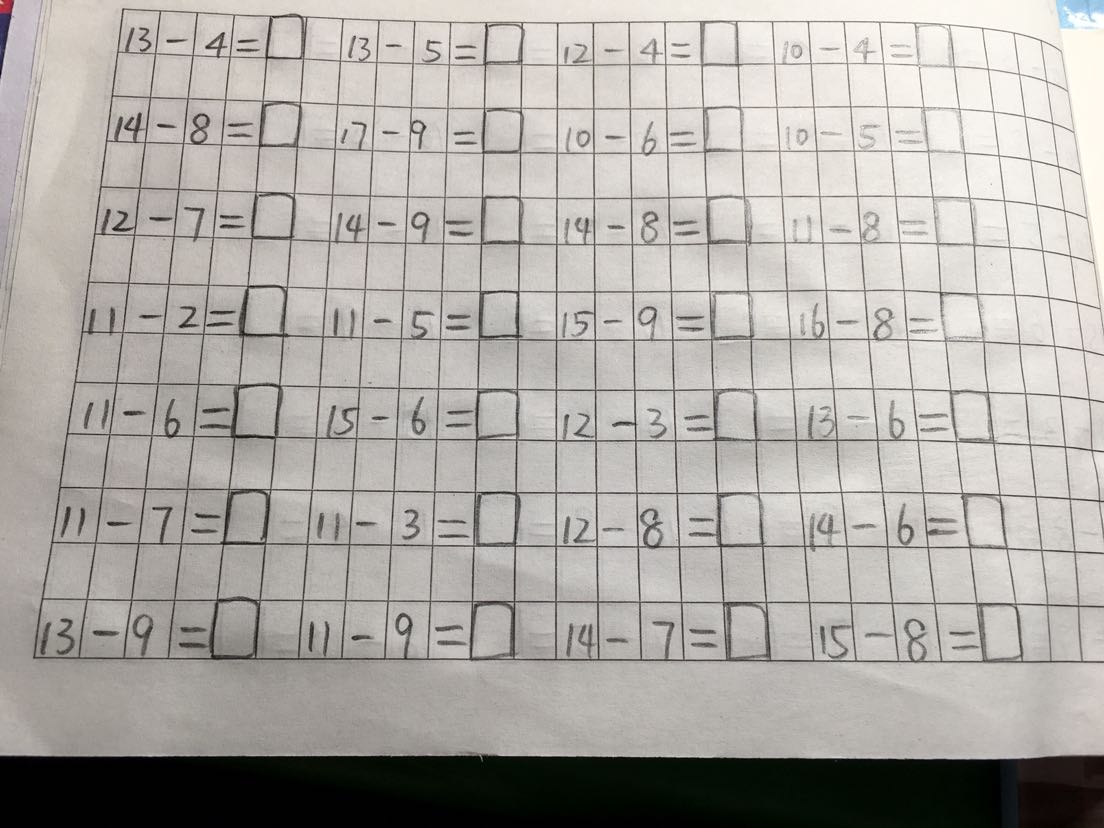 13 - 4 = □ 13 - 5 = □ 12 - 4 = □ 10 - 4 = □
14 - 8 = □ 17 - 9 = □ 10 - 6 = □ 10 - 5 = □
12 - 7 = □ 14 - 9 = □ 14 - 8 = □ 11 - 8 = □
11 - 2 = □ 11 - 5 = □ 15 - 9 = □ 16 - 8 = □
11 - 6 = □ 15 - 6 = □ 12 - 3 = □ 13 - 6 = □
11 - 7 = □ 11 - 3 = □ 12 - 8 = □ 14 - 6 = □
13 - 9 = □ 11 - 9 = □ 14 - 7 = □ 15 - 8 = □